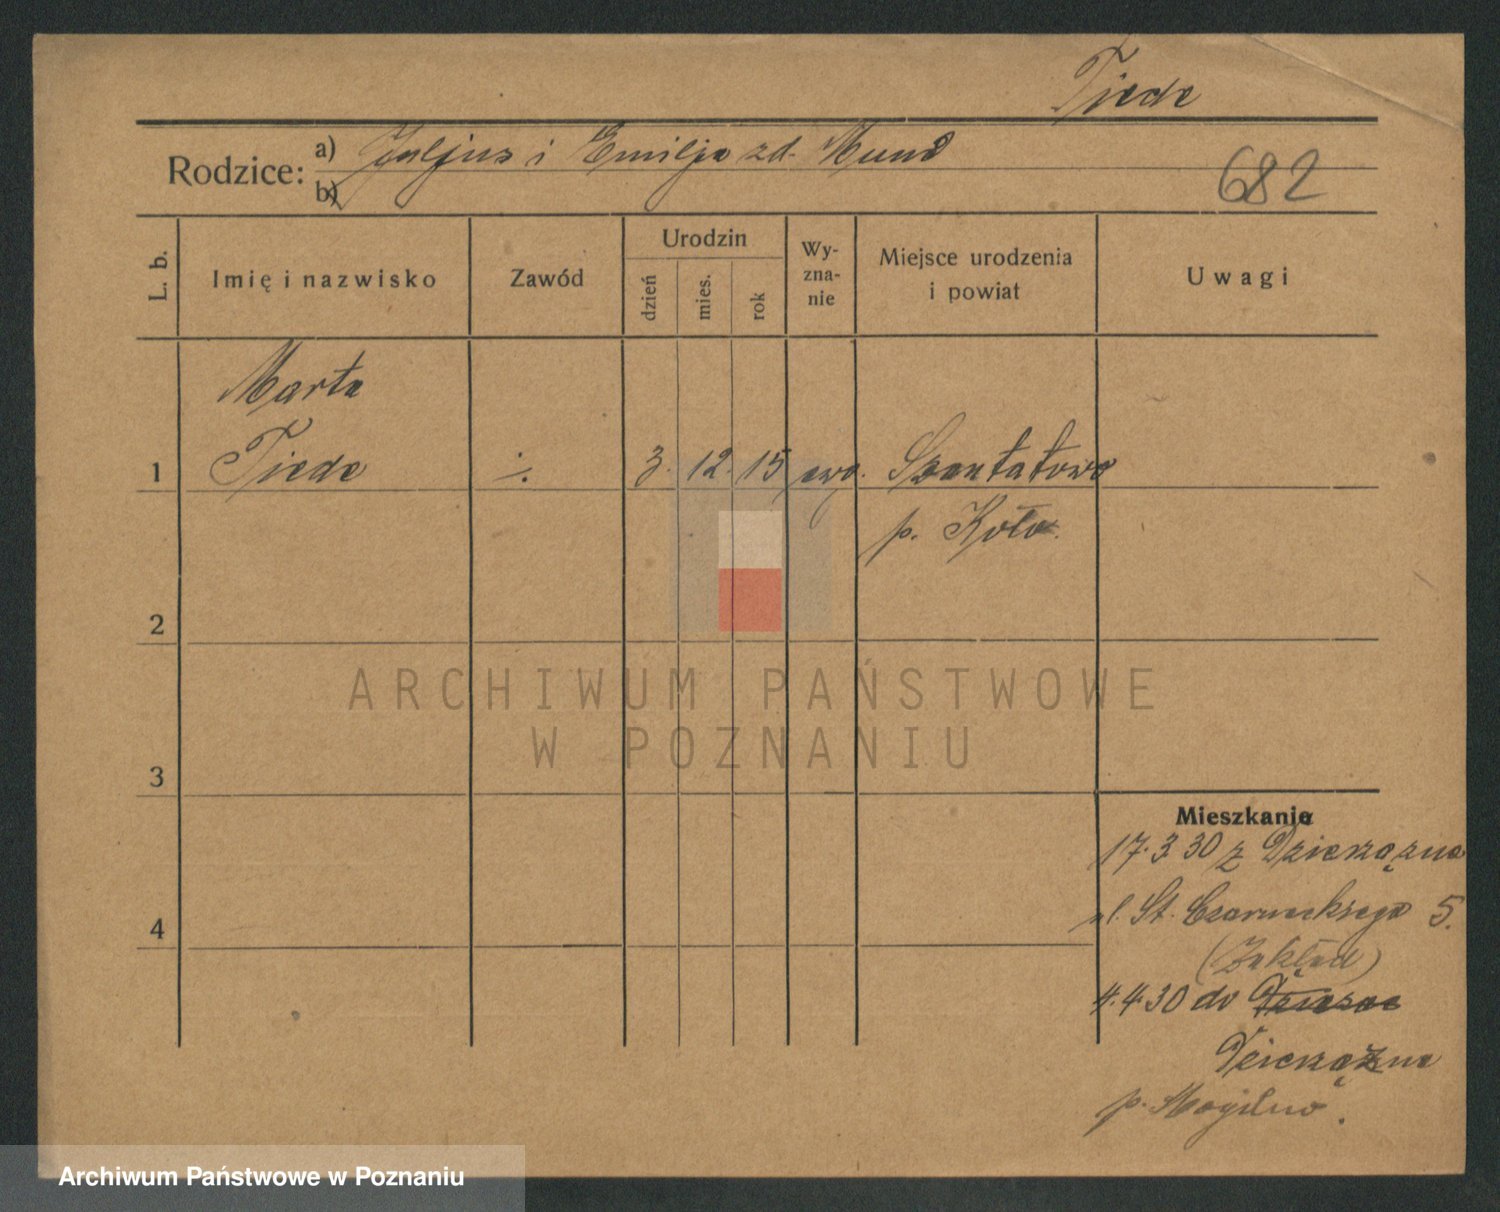 Tiede
Rodzice: a) Juljus i Emilja zd. Mund
b)
682
L. b. Imię i nazwisko Zawód Urodzin dzień mies. rok Wy-zna-nie Miejsce urodzenia i powiat Uwagi
Marta
1 Tiede ·/. 3. 12. 15 ewg. Szantatowo
p. Koło.
2
ARCHIWUM PAŃSTWOWE
W POZNANIU
3
Mieszkanie
17.3.30 z Dzierzązna
ul. St. Czarneckiego 5.
4
(Zakład)
4.4.30 do
Dzierzązna
p. Mogilno.
Archiwum Państwowe w Poznaniu